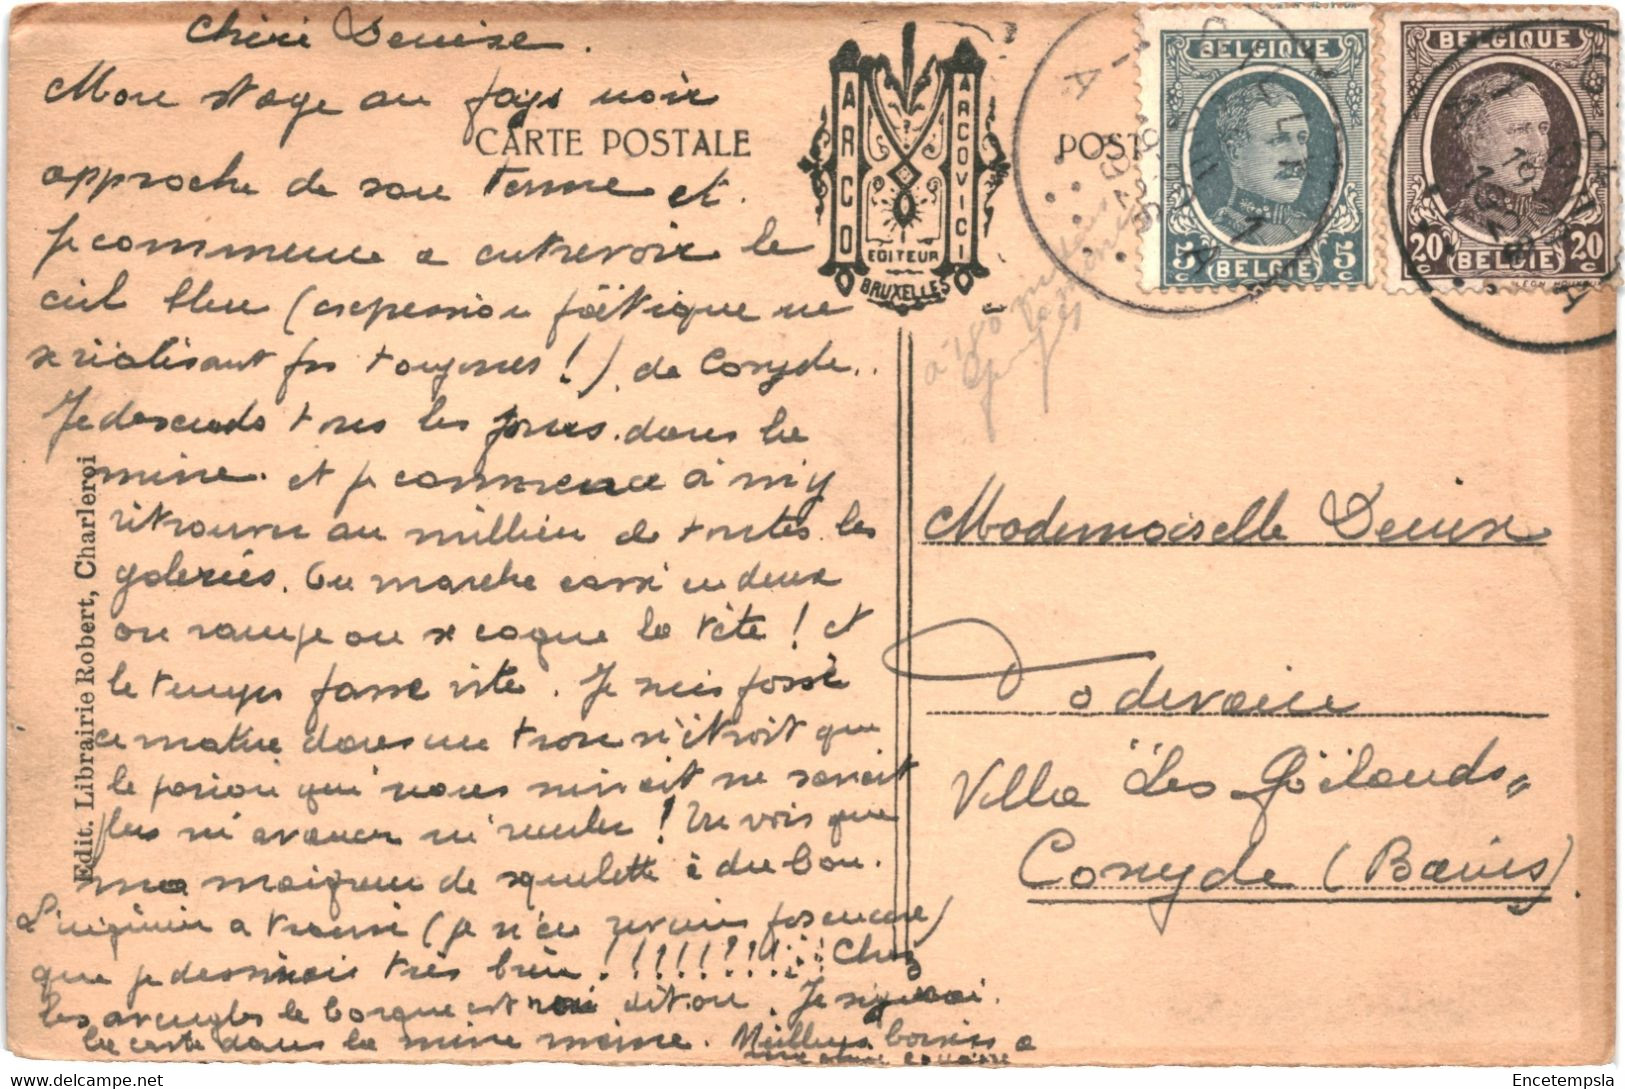 Chère Denise.
Mon stage au pays noir
approche de son terme et
je commence à entrevoir le
ciel bleu (expression poëtique ne
se réalisant pas toujours!) de Coxyde..
Je descends tous les jours dans la
mine. et je commence à m'y
retrouver au millieu de toutes les
galeries. On marche cassé en deux
on rampe on se cogne la tête! et
le temps passe vite. Je suis passé
ce matin dans un trou si étroit que
le porion qui nous suivait ne savait
plus ni avancer ni reculer! Tu vois que
ma maigreur de squelette a du bon.
L'ingénieur a trouvé (je n'en reviens pas encore)
que je dessinais très bien!!!!!!!!!!! Chez
les aveugles le borgne est roi dit on. Je signerai
la carte dans la mine même. Meilleurs baisers a
CARTE POSTALE
ARCO
ARCOVICI
EDITEUR
BRUXELLES
POST
BELGIQUE
5c 5c
BELGIË
BELGIQUE
20c 20c
BELGIË
1926
à 180 mètres
Mademoiselle Denise
Todevaine
Villa "Les Goëlands"
Coxyde (Bains).
Edit. Librairie Robert, Charleroi
Encetempsla